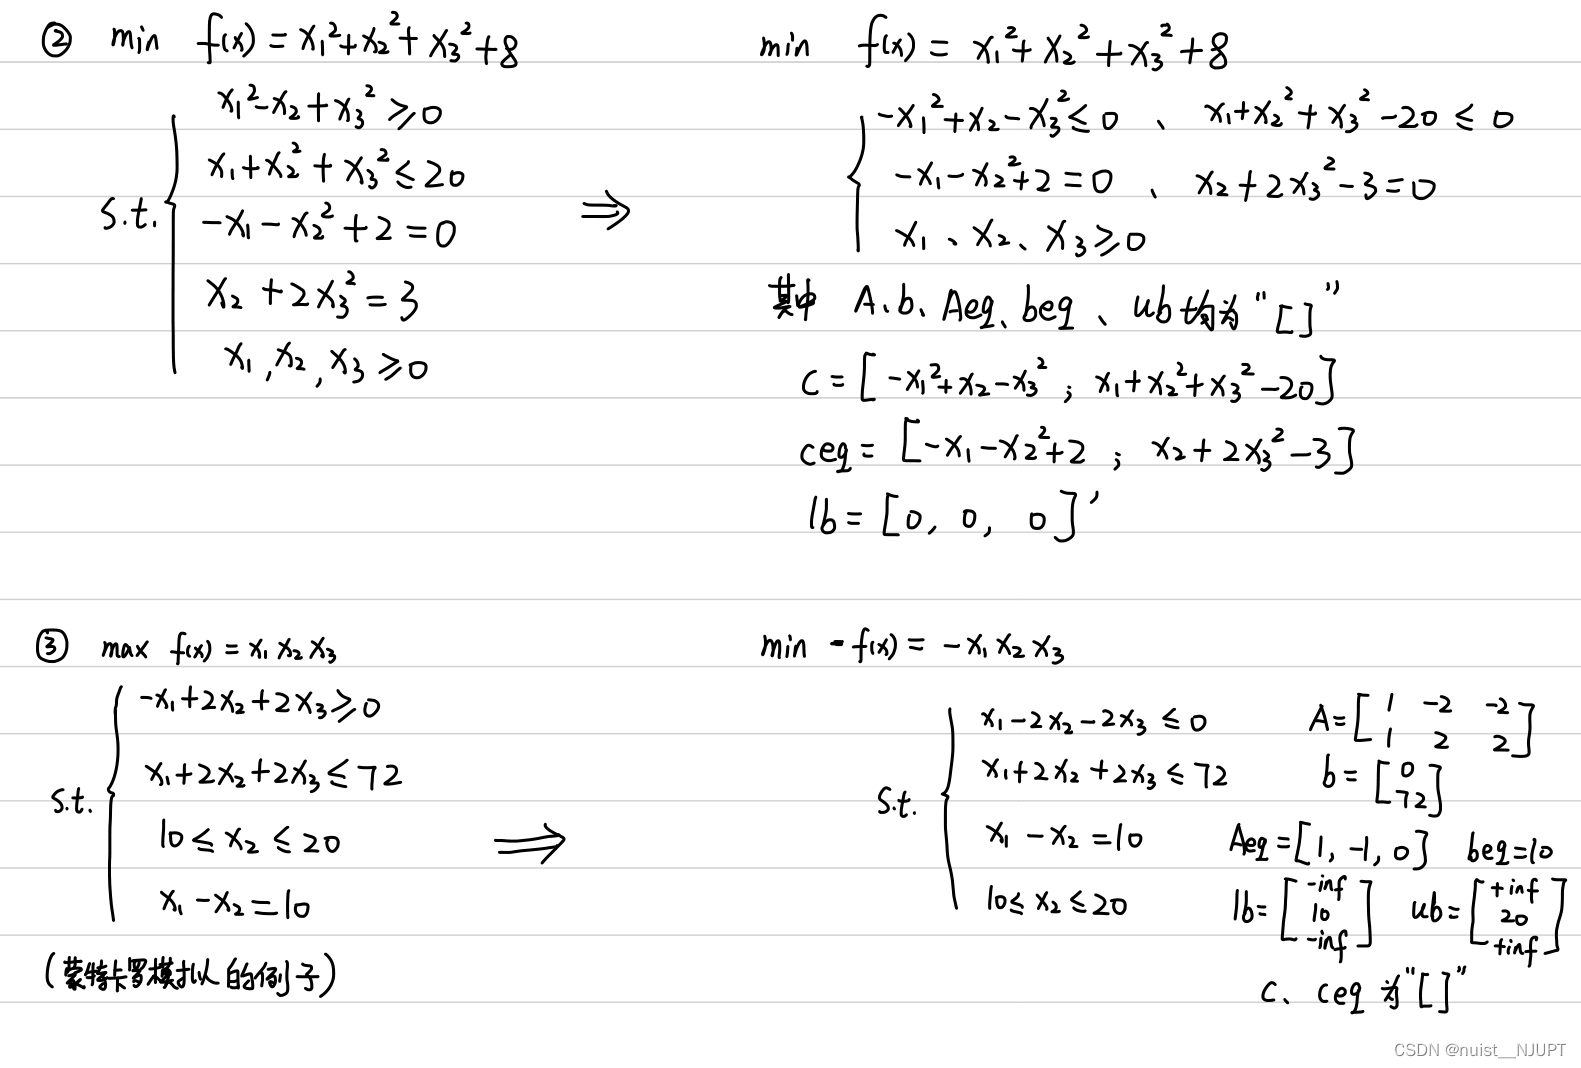 ② min f(x) = x₁²+x₂²+x₃²+8
x₁²-x₂+x₃² ⩾ 0
x₁+x₂²+x₃² ≤ 20
s.t. -x₁-x₂²+2 = 0
x₂+2x₃² = 3
x₁,x₂,x₃ ⩾ 0
⇒
min f(x) = x₁²+x₂²+x₃²+8
-x₁²+x₂-x₃² ≤ 0 、 x₁+x₂²+x₃²-20 ≤ 0
-x₁-x₂²+2 = 0 、 x₂+2x₃²-3 = 0
x₁、x₂、x₃ ⩾ 0
其中 A.b、Aeq、beq、ub均为“[]”
c = [-x₁²+x₂-x₃² ; x₁+x₂²+x₃²-20]
ceq = [-x₁-x₂²+2 ; x₂+2x₃²-3]
lb = [0, 0, 0]'
③ max f(x) = x₁x₂x₃
-x₁+2x₂+2x₃ ⩾ 0
x₁+2x₂+2x₃ ≤ 72
s.t.
10 ≤ x₂ ≤ 20
x₁-x₂ = 10
(蒙特卡罗模拟的例子)
⇒
min -f(x) = -x₁x₂x₃
x₁-2x₂-2x₃ ≤ 0
x₁+2x₂+2x₃ ≤ 72
s.t.
x₁-x₂ = 10
10 ≤ x₂ ≤ 20
A = [1 -2 -2
1 2 2]
b = [0
72]
Aeq = [1, -1, 0] beq = 10
lb = [-inf
10
-inf]
ub = [+inf
20
+inf]
c、ceq 为“[]”
CSDN @nuist__NJUPT